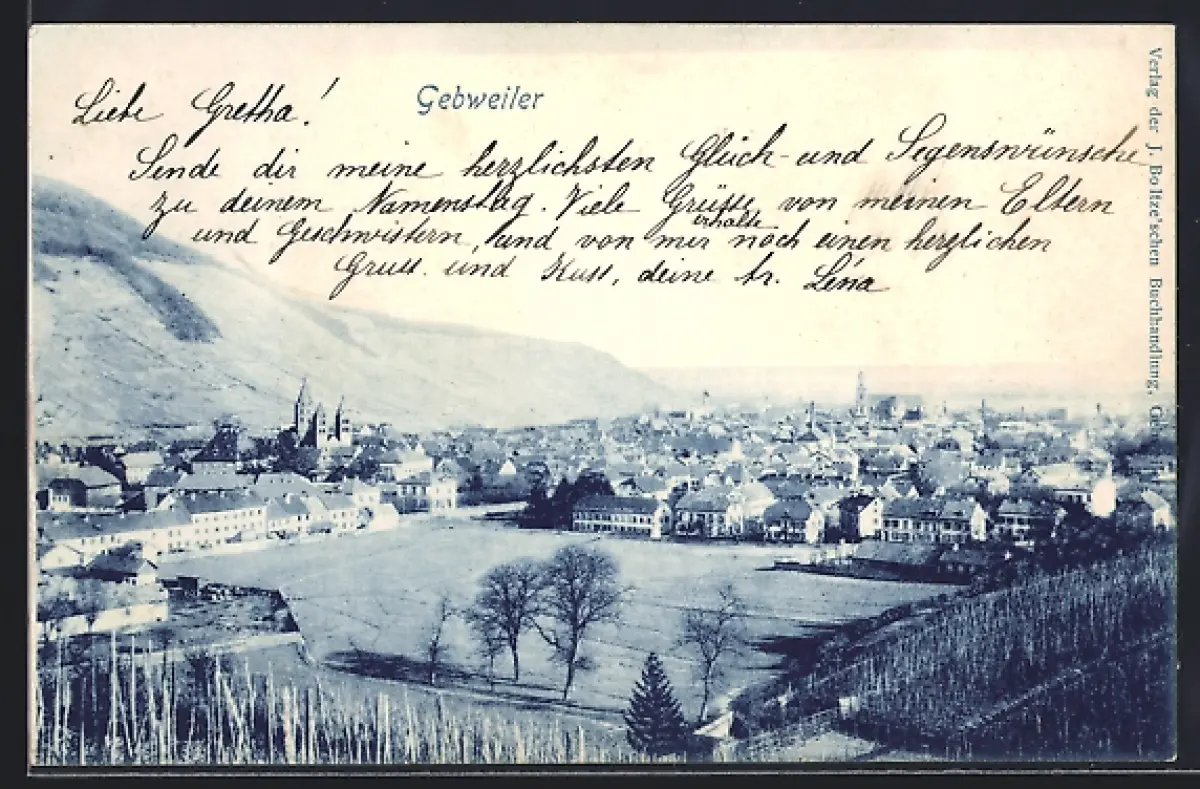 Gebweiler
Liebe Gretha!
Sende dir meine herzlichsten Glück- und Segenswünsche
zu deinem Namenstag. Viele Grüsse von meinen Eltern
und Geschwistern, und von mir erhalte noch einen herzlichen
Gruss und Kuss, deine tr. Léna
Verlag der J. Boltze'schen Buchhandlung, Geb